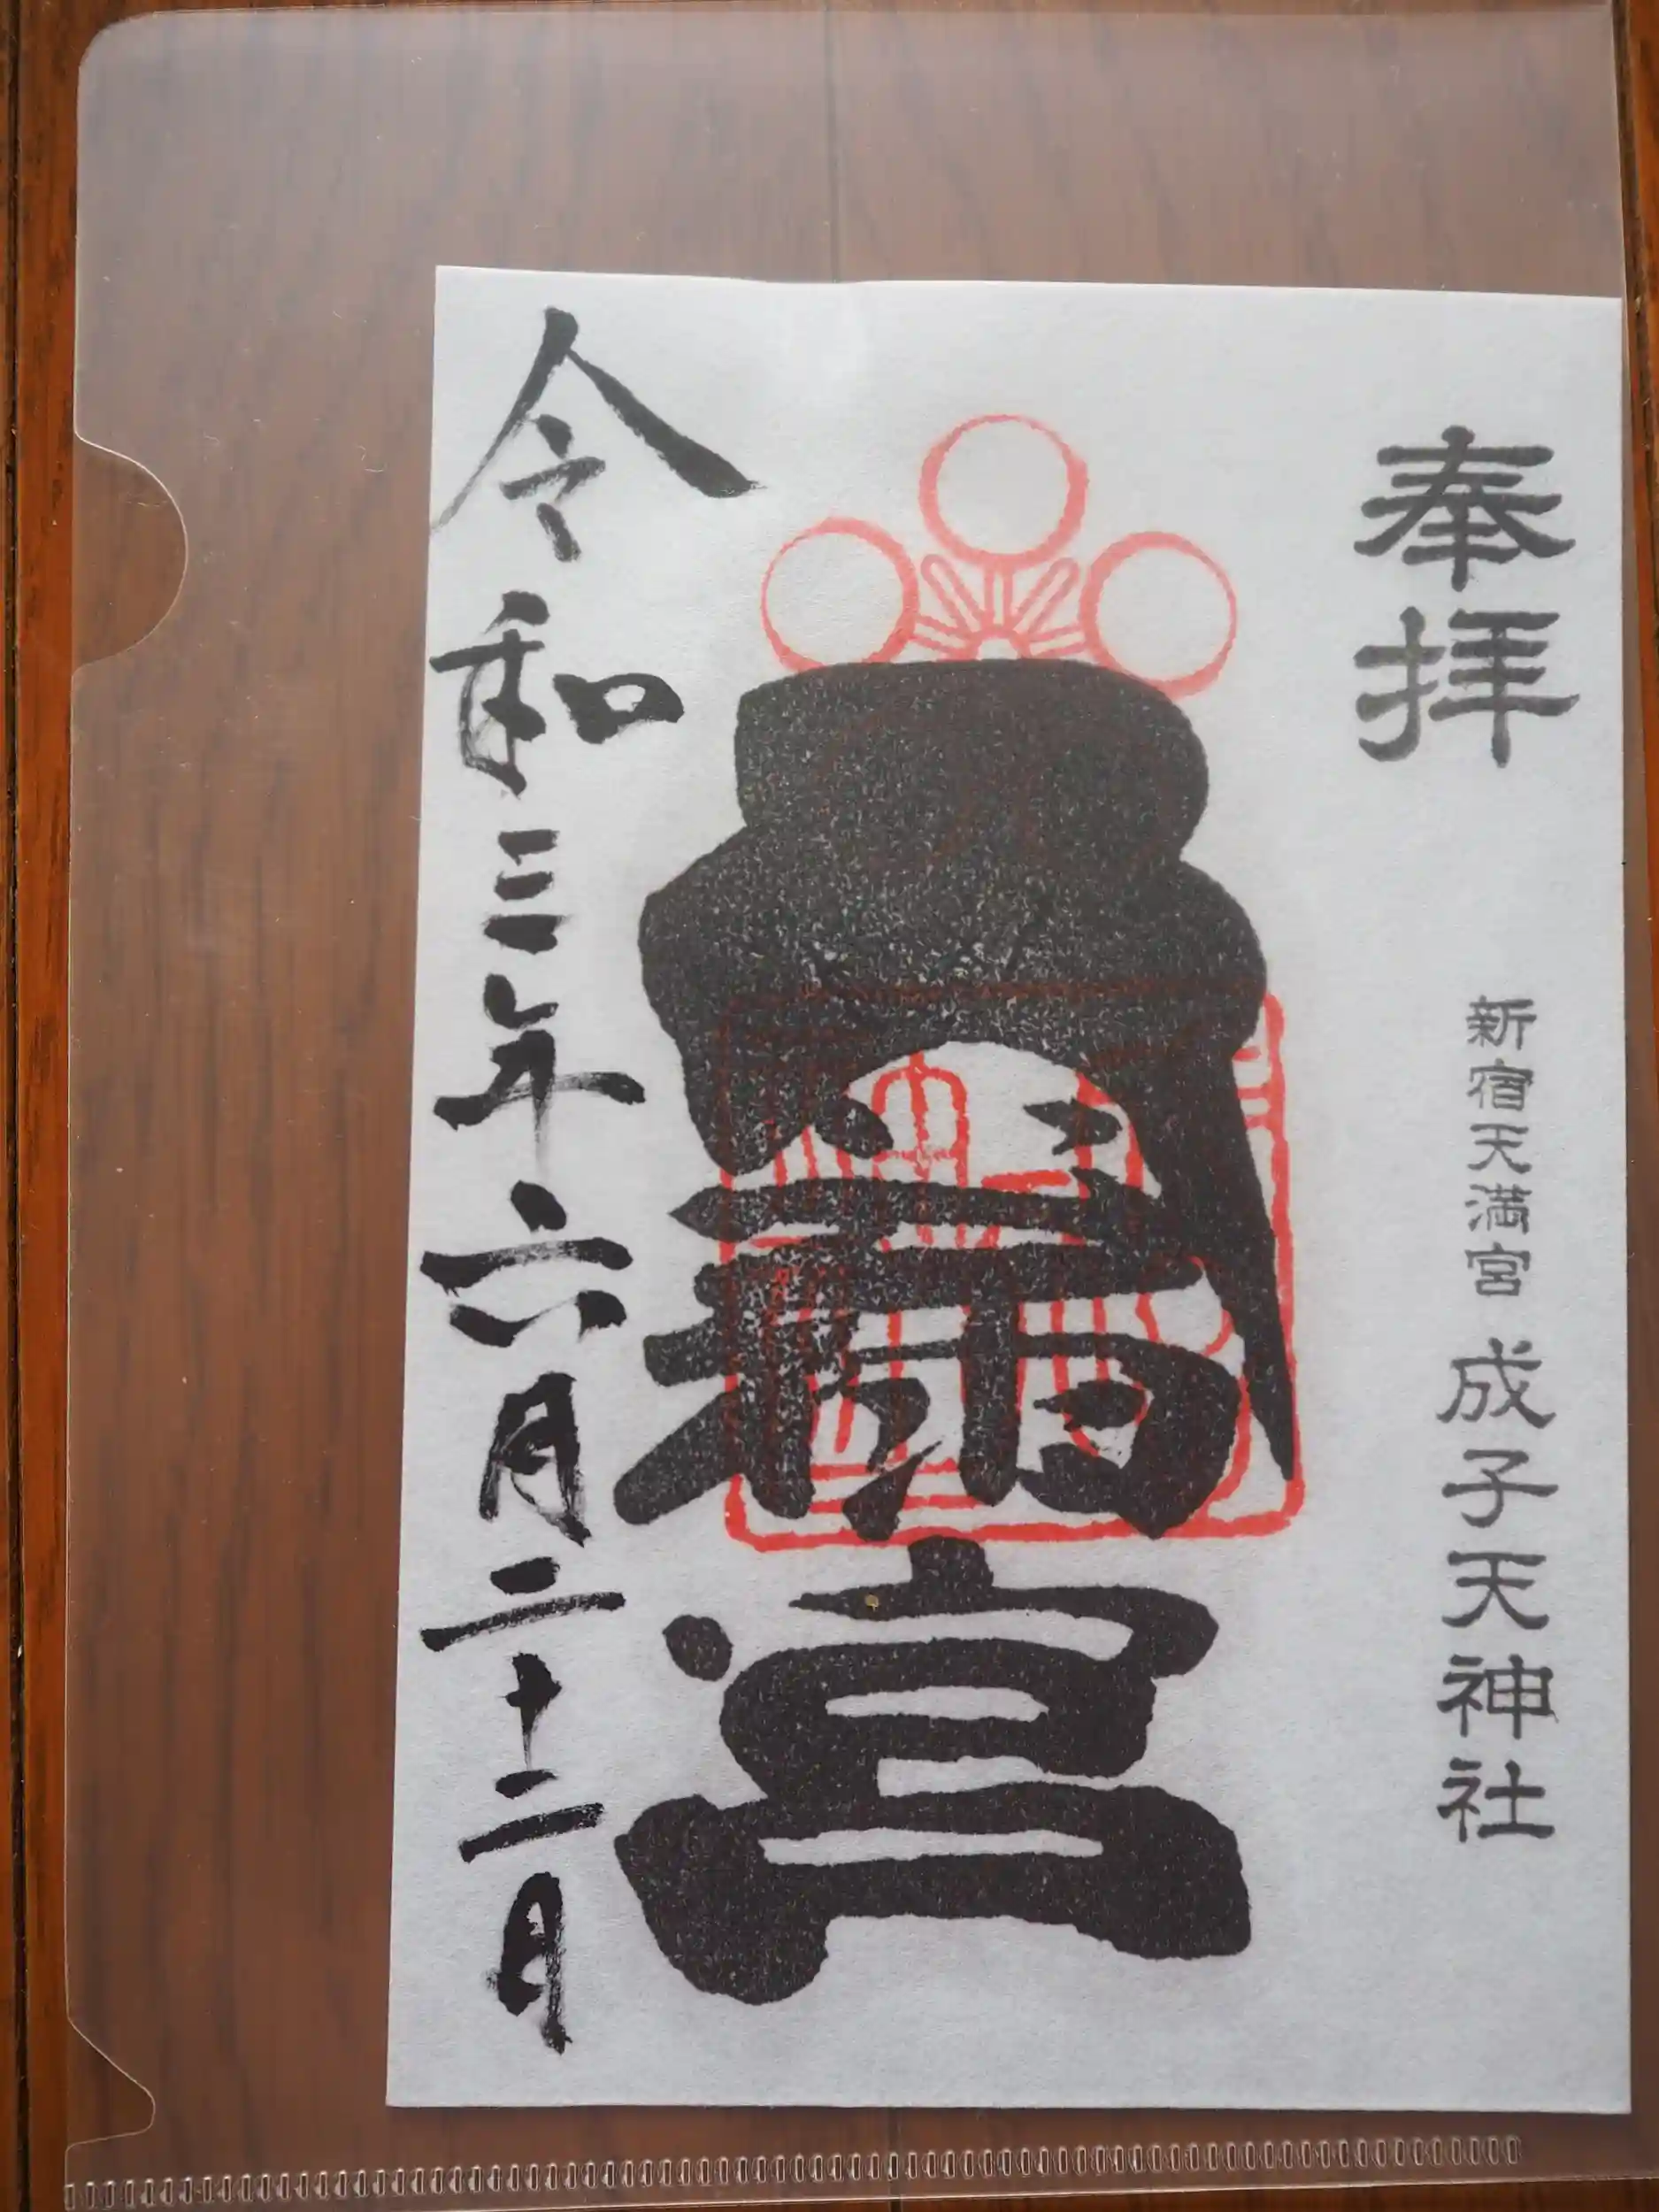 奉拝
新宿天満宮 成子天神社
天満宮
令和三年六月二十二日